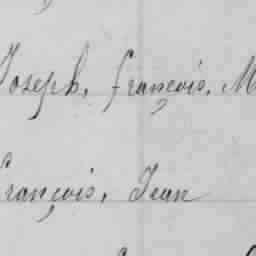 Joseph, françois, M
françois, Jean